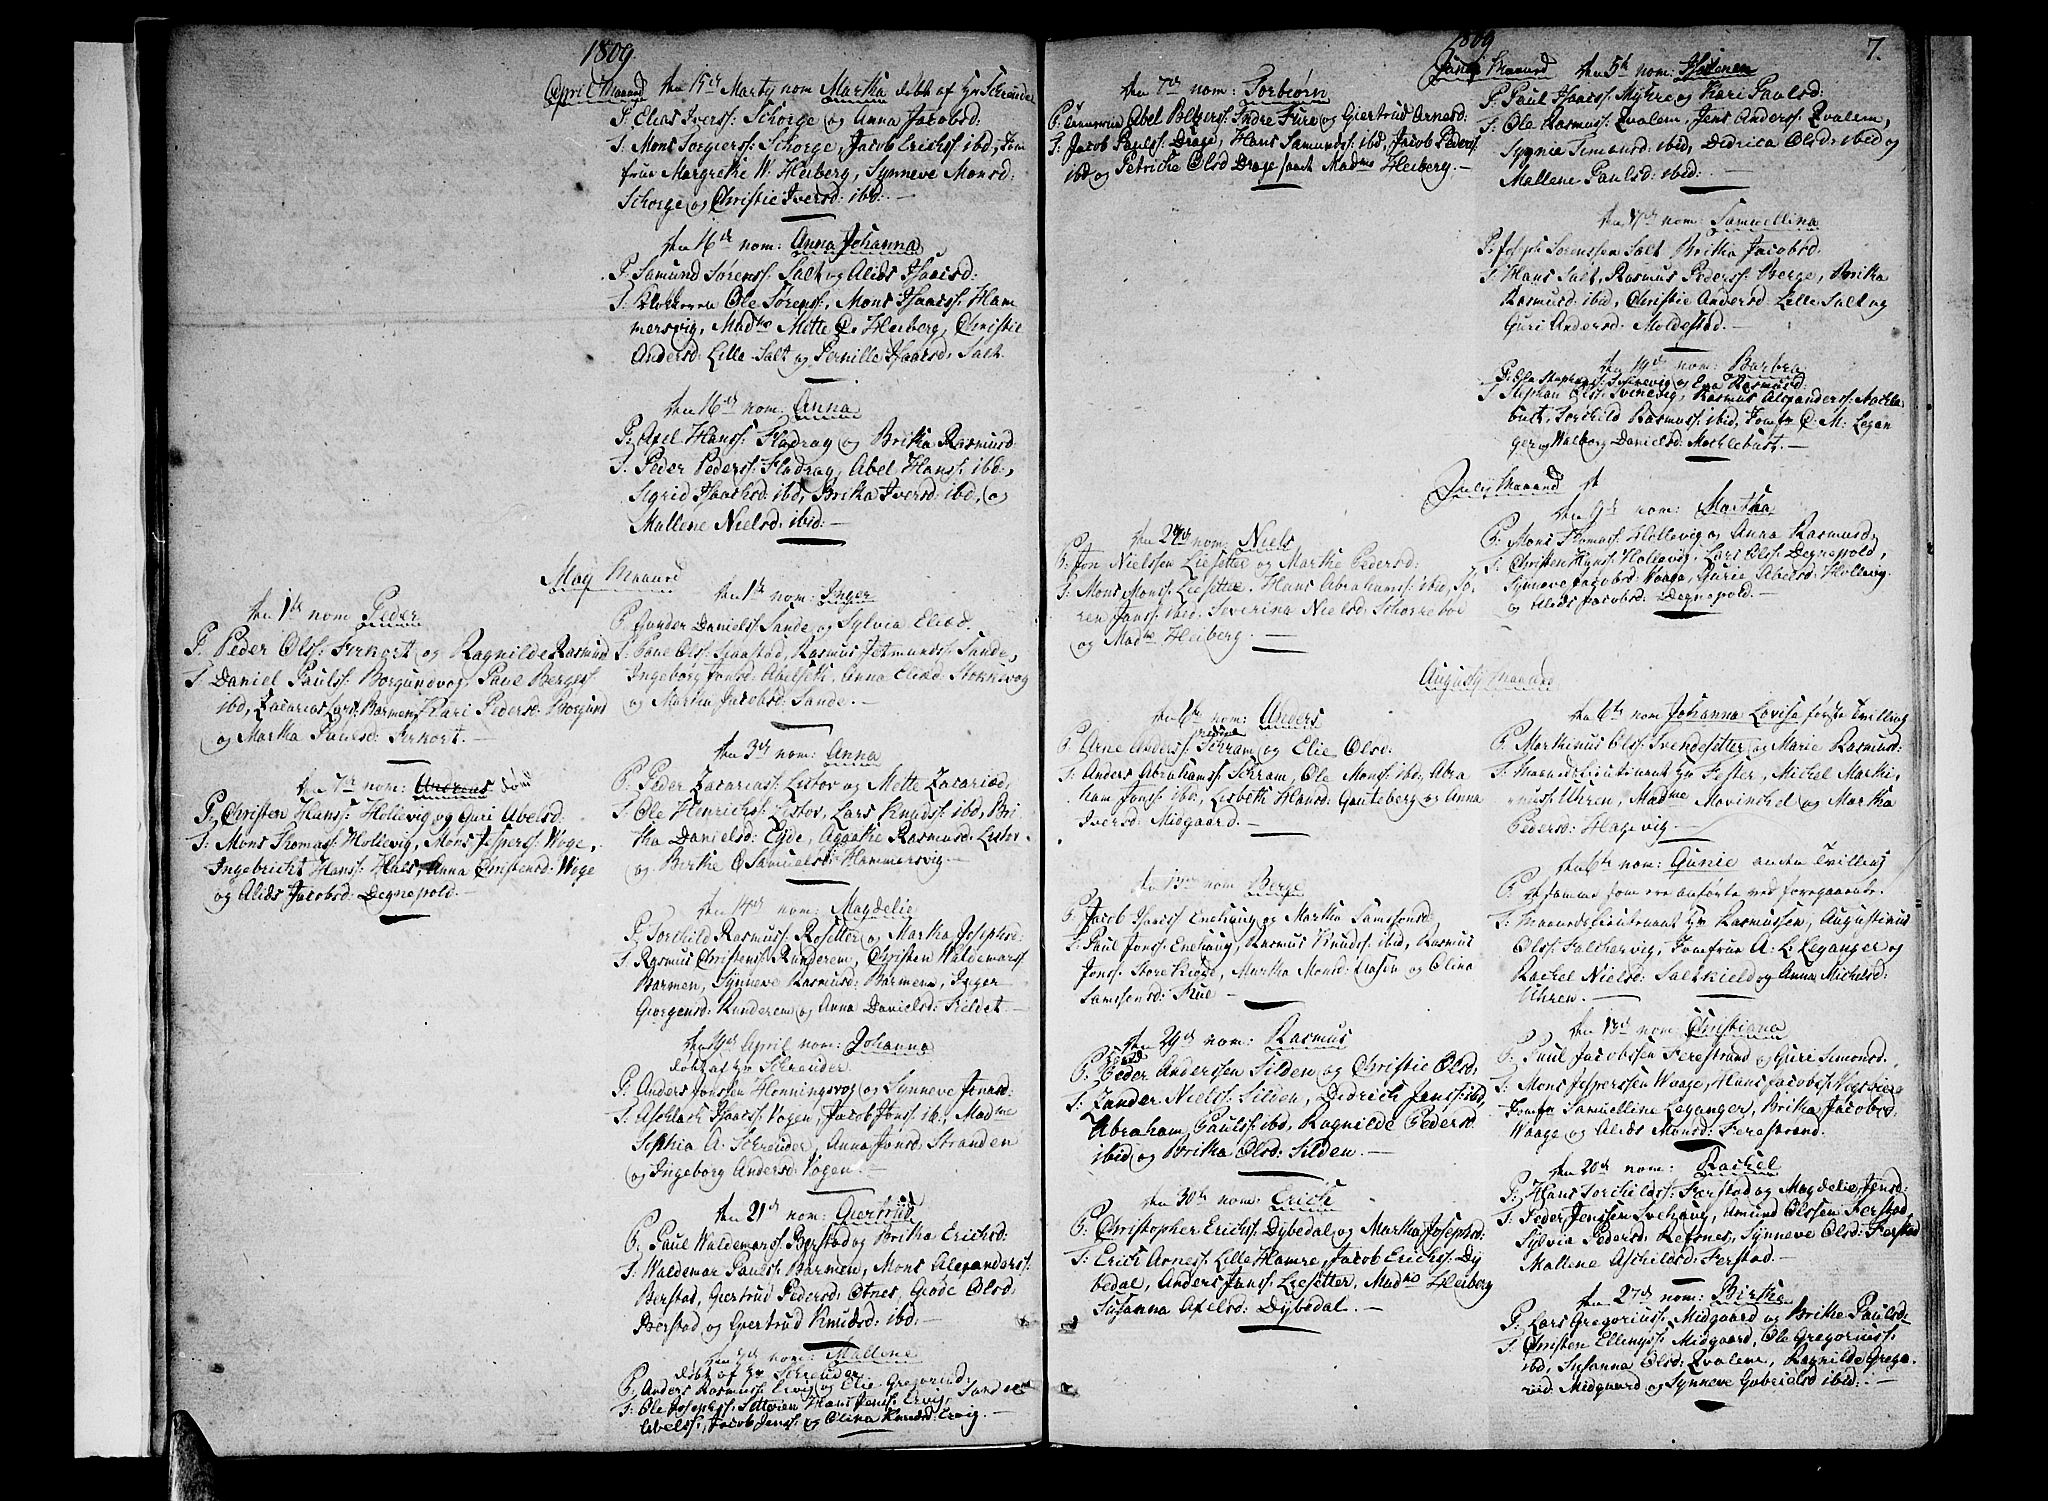 1809.
April Maaned
den 15de Marty nom Martha døbt af Hr Schreuder
P. Elias Ivers: Schorge og Anna Jacobsd:
T. Mons Torgiers: Schorge, Jacob Erichs: ibd, Jom
fru Margrethe W. Heiberg, Synneve Monsd:
Schorge og Christie Iversd: ibd: —
den 16de nom: Anna Johanna
P. Samund Sørens: Salt og Alids Isaacsd:
T. Klokkeren Ole Sørens:, Mons Isaacs: Ham
mersvig, Madme Mette C. Heiberg, Christie
Andersd: Lille Salt og Pernille Isaacsd: Salt.
den 16de nom: Anna
P. Axel Hans: Fladrag og Britha Rasmusd:
T. Peder Peders: Fladrag, Abel Hans: ibd,
Sigrid Isaachsd: ibd, Britha Iversd: ibd, og
Mallene Nielsd: ibid: —
May Maaned
den 1ste nom Peder
P. Peder Ols: Ferkort og Ragnilde Rasmusd
T. Daniel Pauls: Borgundvog, Pave Berges
ibd, Zacarias Lars: Barmen, Kari Pedersd: Borgund
og Martha Paulsd: Ferkort. —
den 7de nom: Andreas
P. Christen Hans: Hollevig og Guri Abelsd:
T. Mons Thomas: Hollevig, Mons Jespers: Woge,
Ingebricht Hans: Hals, Anna Christensd: Woge
og Alids Jacobsd: Degnepold. —
den 1ste nom: Inger
P. Gunder Daniels: Sande og Sylvia Eliæd.
T. Pave Ols: Raastad, Rasmus Jetmunds: Sande,
Ingeborg Jonsd: Abelseth, Anna Eliæd: Stokkevog
og Martha Jacobsd: Sande. —
den 3de nom: Anna
P. Peder Zacarias: Lestov og Mette Zacariæd,
T. Ole Henrichs: Lestov, Lars Knuds: ibd, Bri
tha Danielsd: Eyde, Aggathe Rasmusd: Lestov
og Birthe Samuelsd: Hammersvig —
den 14de nom: Magdelie
P. Torchild Rasmus: Rosetter og Martha Josephsd:
T. Rasmus Christens: Runderem, Christen Waldemars:
Barmen, Synneve Rasmusd: Barmen, Inger
Giorgensd: Runderem og Anna Danielsd: Fieldet —
den 19de April nom: Johanna
døbt af Hr Schreuder
P. Anders Jonsen Honningsvog og Synneve Jonasd:
T. Aschlach Isaacs: Vogen, Jacob Jons: ib., Madme
Sophia A. Schreuder, Anna Jonsd: Stranden
og Ingeborg Andersd: Vogen —
den 21de nom: Giertrud
P. Paul Waldemars: Berstad og Britha Erichsd:
T. Waldemar Pauls: Barmen, Mons Alexanders:
Berstad, Giertrud Pedersd: Otnes, Giøde Olsd,
Berstad og Giertrud Knudsd: ibd: —
nom: Mallene
døbt af Hr Schreuder
P. Anders Rasmus: Ervig og Elie Gregoriud:
T. Ole Josephs: Hans Jens: Ervig,
Abels:, Jacob Jens: og Olina Knudsd: Ervig. —
1809
7.
den 7de nom: Torbiørn
P. Abel Peters: Indre Fure og Giertrud Arnesd:
T. Jacob Pauls: Drage, Hans Samunds: ibd, Jacob Peders:
ibd og Petriche Olsd Drage samt Madme Heiberg. —
den 29de nom: Niels
P. Jon Nielssen Liesetter og Marthe Pedersd:
T. Mons Mons: Liesetter, Hans Abrahams: ibid, Sø
ren Jans: ibid. Siverina Nielsd: Schorrebøe
og Madme Heiberg. —
den 6te nom: Anders
P. Arne Anders: Schram og Elie Olsd:
T. Anders Abrahams: Schram, Ole Mons: ibd, Abra
ham Jons: ibd, Lisbeth Hansd: Gauteberg og Anna
Iversd: Midgaard. —
den 13de nom Berge
P. Jacob Enehaug og Martha Samsonsd:
T. Paul Jons: Enehaug, Rasmus Knuds: ibid, Rasmus
Jons: Store Kiøde, Martha Monsd: og Olina
Samsensd: —
den 29de nom: Rasmus
P. Peder Anderssen Silden og Christie Olsd,
T. Zander Niels: Silden, Didrich Jans: ibd,
Abraham Pauls: ibd, Ragnilde Pedersd
ibid og Britha Olsd: Silden. —
den 30te nom: Erich
P. Christopher Erichs: Dybedal og Martha Josephsd:
T. Erich Arnes: Lille Hamre, Jacob Erichs: Dy
bedal, Anders Jans: Liesetter, Madme Heiberg
Susanna Axelsd: Dybedal. —
Juny Maaned
den 5te nom:
P. Paul Isaacs: Myhre og Kari Paulsd:
T. Ole Rasmus: Qvalem, Jens Anders: Qvalem,
Synnie Simonsd: ibid, Didrica Olsd: ibid og
Mallene Paulsd: ibid: —
den 17de nom: Samuellina
P. Joseph Sørenssen Salt Britha Jacobsd.
T. Hans Salt, Rasmus Peders: Berge, Britha
Rasmusd: ibid, Christie Andersd: Lille Salt og
Guri Andersd: Moldestad. —
den 19de nom: Barbra
P. Ole Stephans: Svinevig og Eva Rasmusd:
T. Stephan Ols: Svinevig, Rasmus Alexanders: Mochle
bust, Torchild Rasmus: ibid, Jomfr C. M: Legan
ger og Walborg Danielsd: Mochlebust. —
July Maaned
den 9de nom: Martha
P. Mons Thomas: Hollevig og Anna Rasmusd,
T. Christen Hans: Hollevig, Lars Ols: Degnepold,
Synneve Jacobsd: Vaage, Gurie Abelsd: Hollevig
og Alids Jacobsd: Degnepold. —
Augusty Maaned
den 6te nom Johanna Lovisa første Tvilling
P. Marthinus Ols: Svendesetter og Marie Rasmusd:
T. Maanedslieutnant Hr Fester, Michel Marthi-
nus: Uhren, Madme Movinchel og Martha
Pedersd: Hagevig —
den 6te nom: Gunie anden Tvilling
P. de samme som ere anførte ved foregaaende.
T. Maanedslieutnant Hr Rasmussen, Augustinus
Ols: Salchervig, Jomfrue A: L Leganger og
Rachel Nielsd: Saltkield og Anna Michelsd:
Uhren. —
den 13de nom: Christiana
P. Paul Jacobssen Ferestrand og Guri Simonsd.
T. Mons Jesperssen Waage, Hans Jacobs: Vogs
Jomfr Samuelline Leganger, Britha Jacobsd:
Waage og Alids Monsd: Ferestrand.
den 20de nom: Rachel
P. Hans Torchilds: Ferstad og Magdelie Jensd:
T. Peder Jenssen Svehaug, Amund Olssen Ferstad,
Sylvia Pedersd: Refsnes, Synneve Olsd: Ferstad
Mallene Aschildsd: Ferstad. —
den 27de nom: Birthe
P. Lars Gregorius: Midgaard og Brithe Paulsd
T. Christen Ellings: Midgaard, Ole Gregorius:
ibd, Susanna Olsd: Qvalem, Ragnilde Grego-
riud: Midgaard og Synneve Gabrielsd ibid: —